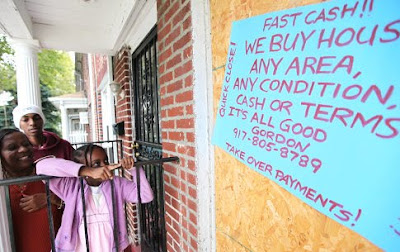 FAST CASH!!
WE BUY HOUS
ANY AREA,
ANY CONDITION,
CASH OR TERMS
IT'S ALL GOOD
GORDON
917-805-8789
TAKE OVER PAYMENTS!
QUICK CLOSE!